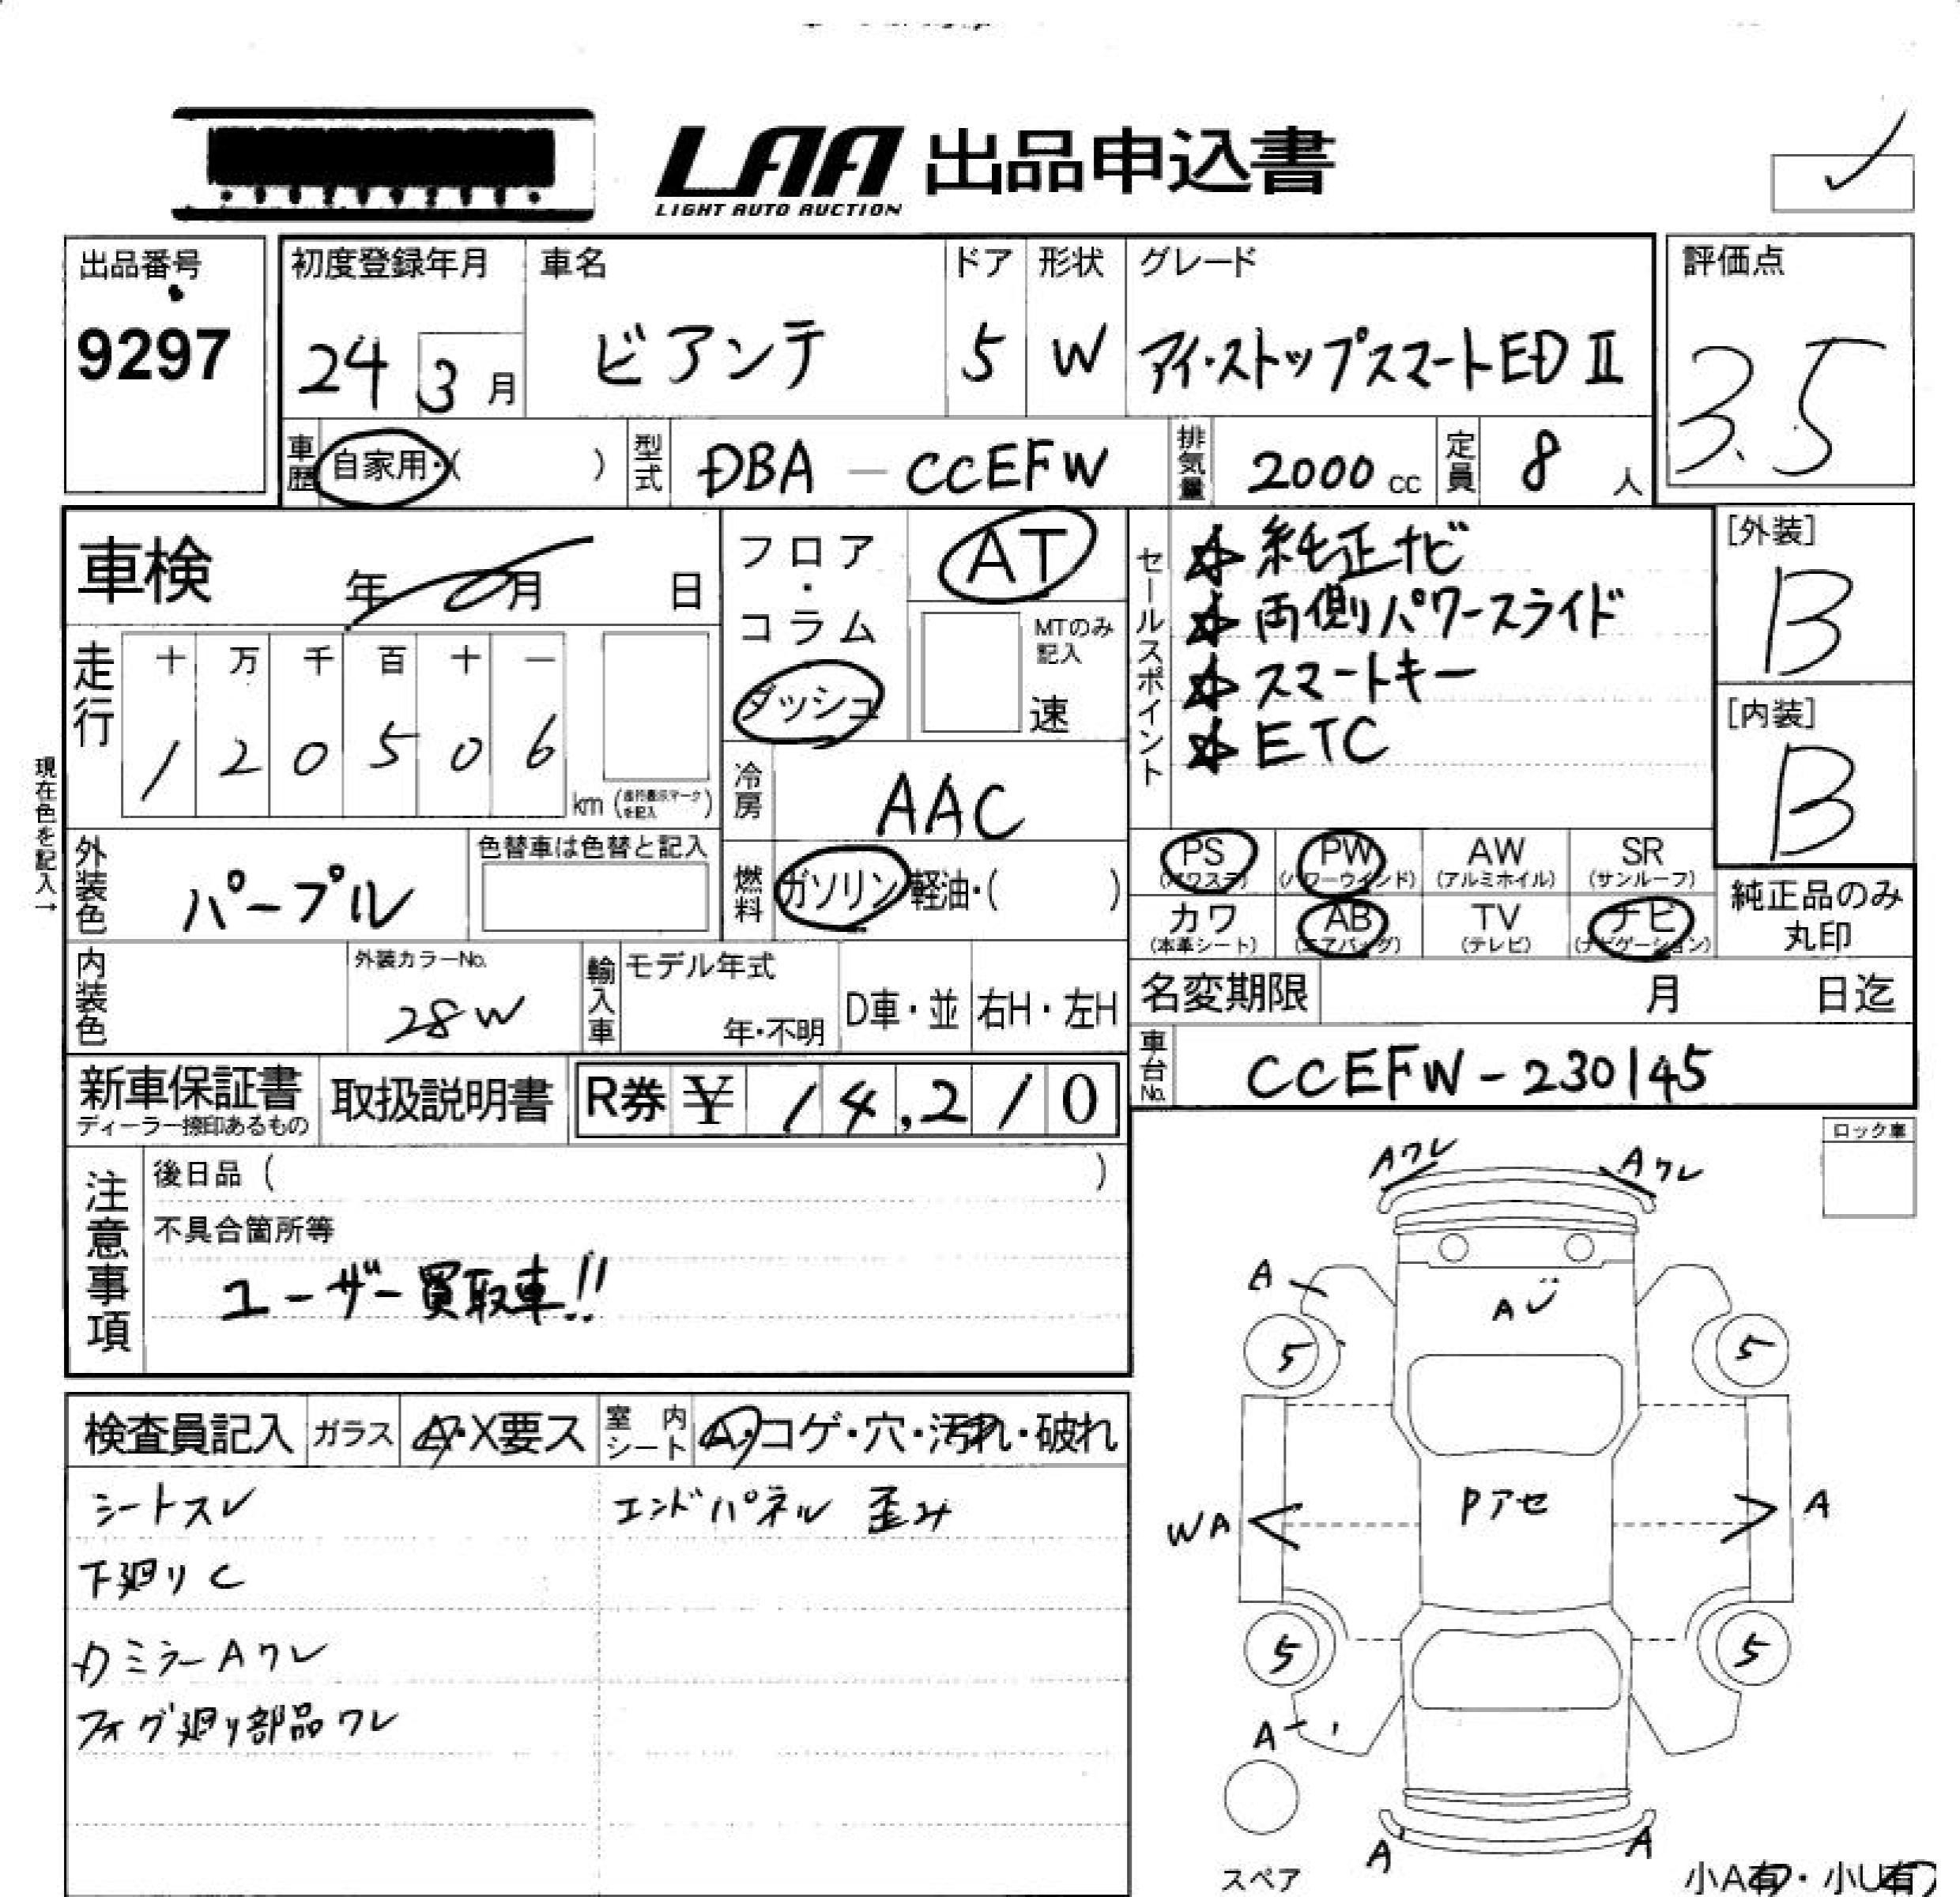 LAA 出品申込書
LIGHT AUTO AUCTION
出品番号
9297
初度登録年月
24 3月
車名
ビアンテ
ドア
5
形状
W
グレード
アイ・ストップスマートED II
評価点
3.5
車歴
自家用・( )
型式
DBA-CCEFW
排気量
2000 cc
定員
8 人
車検 年 月 日
走行
十 万 千 百 十 一
1 2 0 5 0 6
km (走行表示マークを記入)
現在色を記入→
フロア・コラム
ダッシュ
AT
MTのみ記入
速
冷房
AAC
燃料
ガソリン 軽油・( )
セールスポイント
☆ 純正ナビ
☆ 両側パワースライド
☆ スマートキー
☆ ETC
[外装]
B
[内装]
B
外装色
パープル
色替車は色替と記入
PS (パワステ)
PW (パワーウインド)
AW (アルミホイル)
SR (サンルーフ)
カワ (本革シート)
AB (エアバッグ)
TV (テレビ)
ナビ (ナビゲーション)
純正品のみ
丸印
内装色
外装カラーNo.
28W
輸入車
モデル年式
年・不明
D車・並
右H・左H
名変期限 月 日迄
車台No.
CCEFW-230145
新車保証書
ディーラー捺印あるもの
取扱説明書
R券 ¥ 14,210
注意事項
後日品 ( )
不具合箇所等
ユーザー買取車!!
ロック車
Aワレ
Aワレ
A
A
5
5
Pアセ
WA
A
5
5
A
A
A
スペア
小A有・小U有
検査員記入
ガラス
A・X要ス
室内シート
A・コゲ・穴・汚れ・破れ
シートスレ
エンドパネル 歪み
下廻りC
ミラーAワレ
フォグ廻り部品ワレ